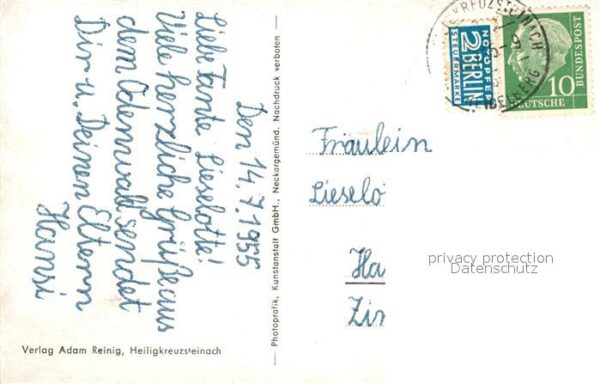 Den 14.7.1955
Liebe Tante Lieselotte!
Viele herzliche Grüße aus
dem Odenwald sendet
Dir u. Deinen Eltern
Hansi
Verlag Adam Reinig, Heiligkreuzsteinach
Photografik, Kunstanstalt GmbH., Neckargemünd. Nachdruck verboten
NOTOPFER
2
BERLIN
STEUERMARKE
10
DEUTSCHE
BUNDESPOST
Fräulein
Lieselo
Ha
Zir
privacy protection
Datenschutz